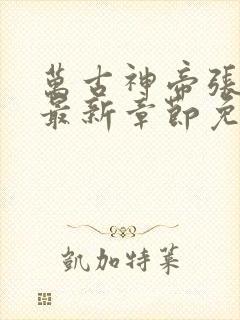 萬古神帝張
最新章節免
凱加特萊